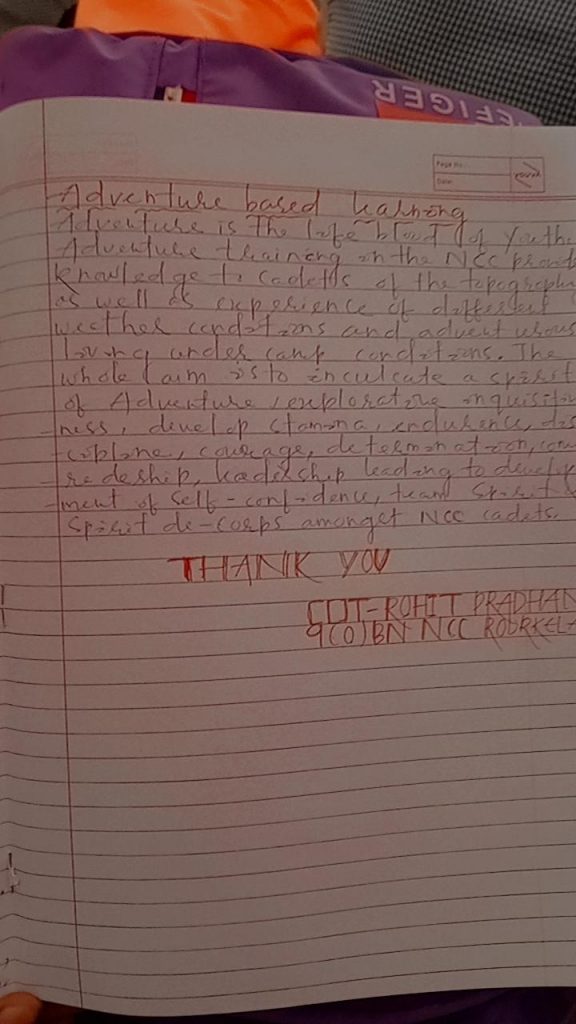 EFIGER
Page No.
Date:
youva
Adventure based learning
Adventure is the life blood of youth.
Adventure training in the NCC provid
knowledge to cadets of the topography
as well as experience of different
weather conditions and adventurous
living under camp conditions. The
whole aim is to inculcate a spirit
of Adventure, explorative inquisitiv
-ness, develop stamina, endurence, dis
-cipline, courage, determination, com
-redeship, leadership leading to develop
-ment of self-confidence, team spirit &
spirit de-corps amongst NCC cadets.
THANK YOU
CDT-ROHIT PRADHAN
9(O)BN NCC ROURKELA